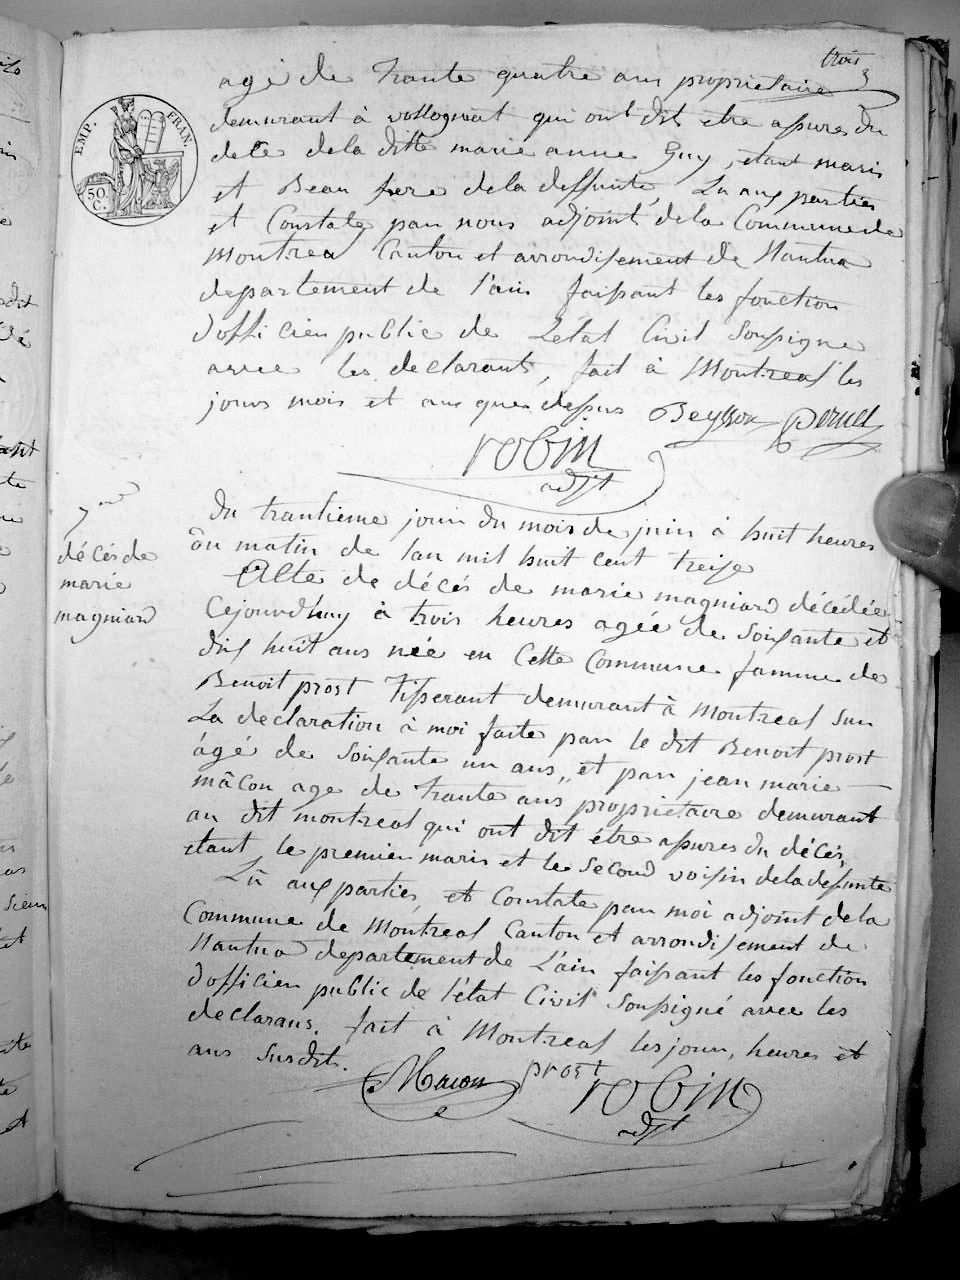 trois
3
EMP. FRAN.
50
C.
agé de trante quatre ans proprietaire
demurant à vollognat qui ont dit etre assures du
decé de la ditte marie anne Guy, etant maris
et Beau frere de la deffunte, Lu aux parties
et Constate par nous adjoint de la Commune de
montreal Canton et arrondisement de Nantua
departement de l'ain faissant les fonction
d'officier public de L'etat Civil Soussigne
avec les declarants, fait à Montreal les
jours mois et ans que dessus Beysson Pernet
robin
adjt
7me
décés de
marie
magniard
Du trantieme jour du mois de juin à huit heures
du matin de lan mil huit cent treise
Acte de décés de marie magniard décédée
Cejourd'huy à trois heures agée de Soixante et
dix huit ans née en Cette Commune famme de
Benoit prost Tisserant demurant à Montreal Sur
La declaration à moi faite par le dit Benoit prost
âgé de Soixante un ans, et par jean marie
mâcon age de trante ans proprietaire demurant
au dit montreal qui ont dit être assures du décés,
etant le premier maris et le Second voisin de la defunte
Lû aux parties, et Constate par moi adjoint de la
Commune de Montréal Canton et arrondisement de
Nantua departement de L'ain faissant les fonction
d'officier public de l'état Civil Soussigné avec les
declarans. fait à Montreal les jour, heures et
ans Susdit.
Macon prost robin
adjt